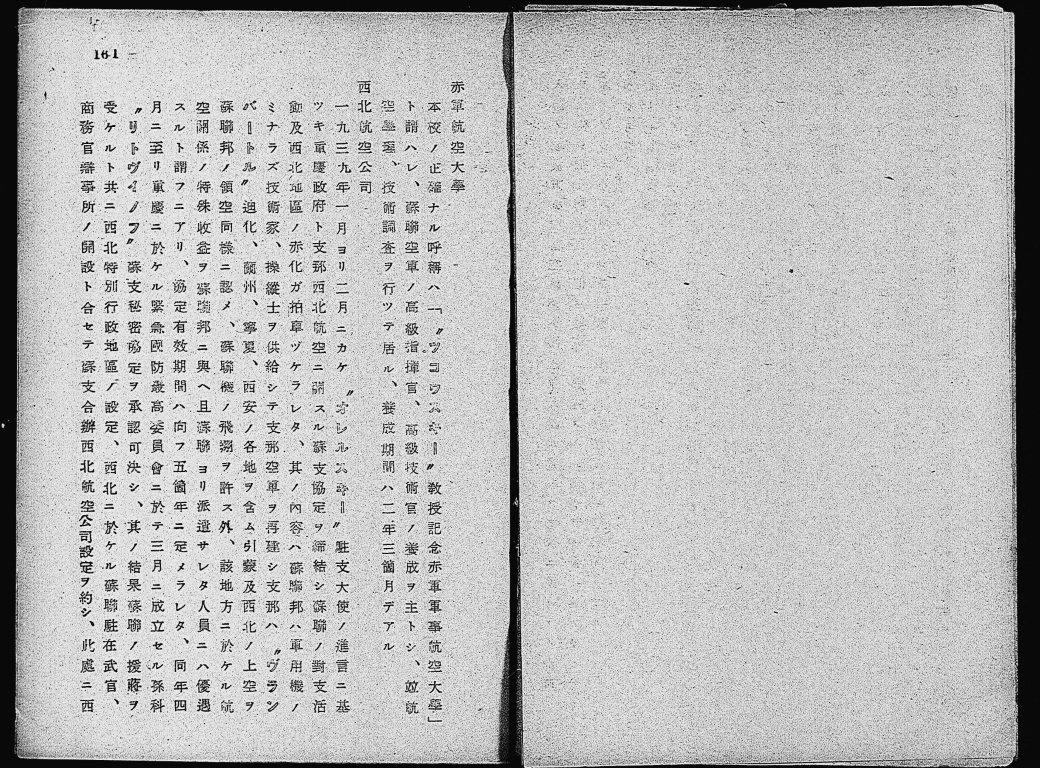 161
赤軍航空大學
本校ノ正確ナル呼稱ハ「〃ヅコウスキー〃教授記念赤軍軍事航空大學」
ト謂ハレ、蘇聯空軍ノ高級指揮官、高級技術官ノ養成ヲ主トシ、竝航
空學理、技術調査ヲ行ツテ居ル、養成期間ハ二年三箇月デアル
西北航空公司
一九三九年一月ヨリ二月ニカケ〃オレルスキー〃駐支大使ノ進言ニ基
ツキ重慶政府ト支那西北航空ニ關スル蘇支協定ヲ締結シ蘇聯ノ對支活
動及西北地區ノ赤化ガ拍車ヅケラレタ、其ノ內容ハ蘇聯邦ハ軍用機ノ
ミナラズ技術家、操縱士ヲ供給シテ支那空軍ヲ再建シ支那ハ〃ヴラン
バートル〃迪化、蘭州、寧夏、西安ノ各地ヲ含ム引蒙及西北ノ上空ヲ
蘇聯邦ノ領空同樣ニ認メ、蘇聯機ノ飛翔ヲ許ス外、該地方ニ於ケル航
空關係ノ特殊收益ヲ蘇聯邦ニ與ヘ且蘇聯ヨリ派遣サレタ人員ニハ優遇
スルト謂フニアリ、協定有效期間ハ向フ五箇年ニ定メラレタ、同年四
月ニ至リ重慶ニ於ケル緊急國防最高委員會ニ於テ三月ニ成立セル孫科
〃リトヴイノフ〃蘇支秘密協定ヲ承認可決シ、其ノ結果蘇聯ノ援蔣ヲ
受ケルト共ニ西北特別行政地區ノ設定、西北ニ於ケル蘇聯駐在武官、
商務官辯事所ノ開設ト合セテ蘇支合辦西北航空公司設定ヲ約シ、此處ニ西